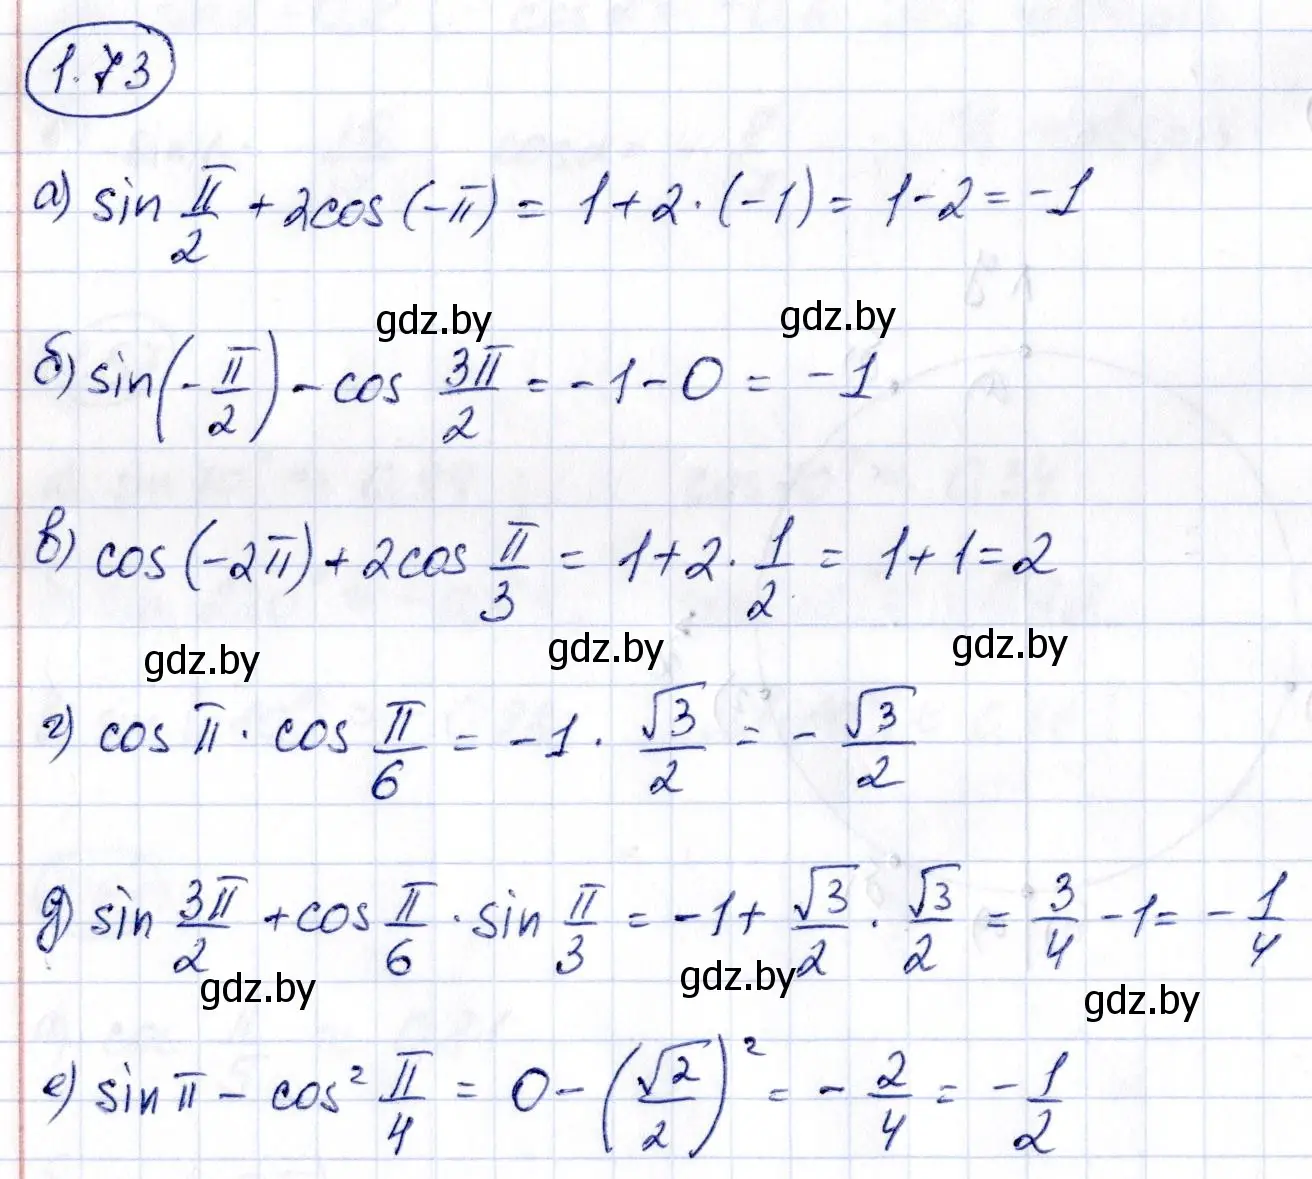 1.73
а) sin π/2 + 2cos(-π) = 1+2·(-1) = 1-2 = -1
gdz.by gdz.by
б) sin(-π/2) - cos 3π/2 = -1-0 = -1
в) cos(-2π) + 2cos π/3 = 1+2·1/2 = 1+1=2
gdz.by gdz.by gdz.by
г) cos π · cos π/6 = -1 · √3/2 = - √3/2
д) sin 3π/2 + cos π/6 · sin π/3 = -1+ √3/2 · √3/2 = 3/4 -1 = - 1/4
gdz.by gdz.by gdz.by
е) sin π - cos² π/4 = 0 - (√2/2)² = - 2/4 = - 1/2